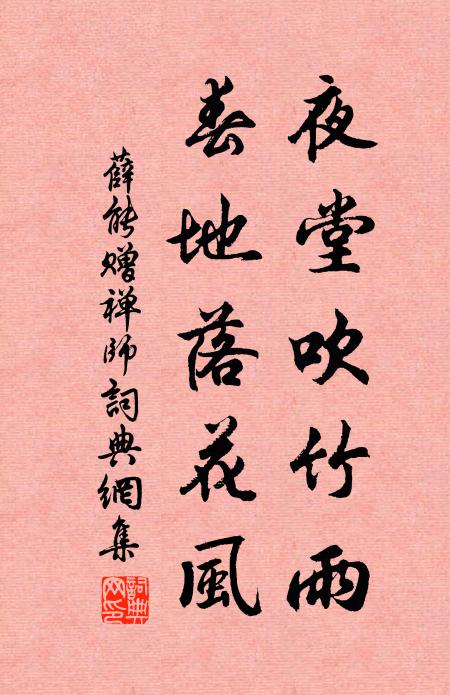 夜堂吹竹雨
春地落花風
薛能贈禅師詞典網集
詞典網印